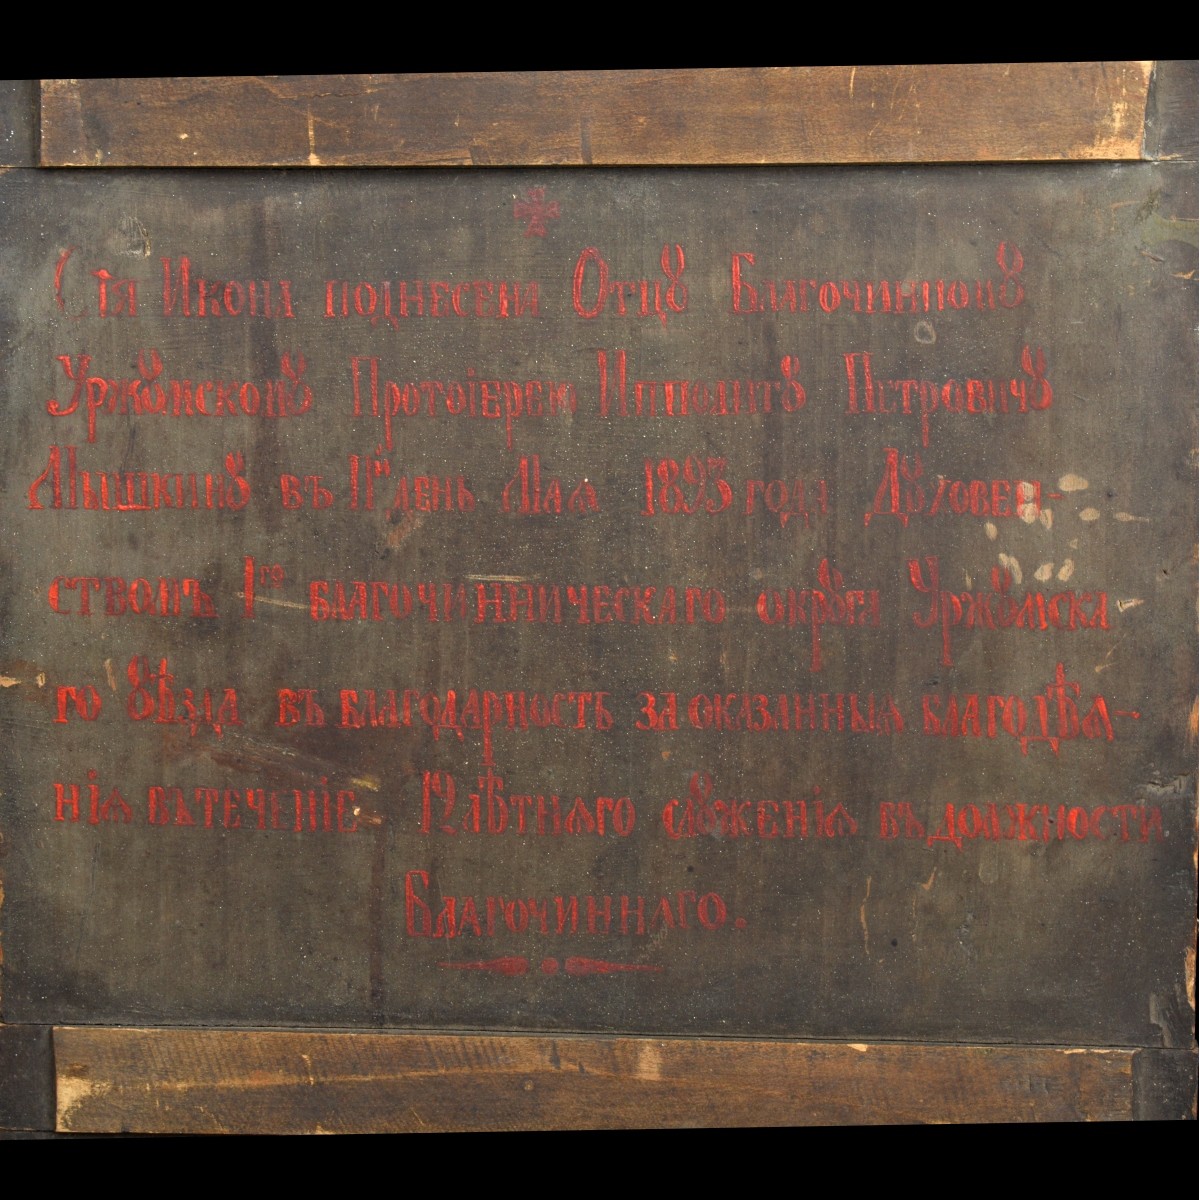 Сія Икона поднесена Отцꙋ Благочинномꙋ
Уржꙋмскомꙋ Протоіерею Ипполитꙋ Петровичꙋ
Мышкинꙋ въ 11й день Мая 1893 года Дꙋховен-
ствомъ 1го благочинническаго окрꙋга Уржꙋмска
го ꙋѣзда въ благодарность за оказанныя благодѣя-
нія въ теченіе 12 лѣтняго слꙋженія въ должности
Благочиннаго.